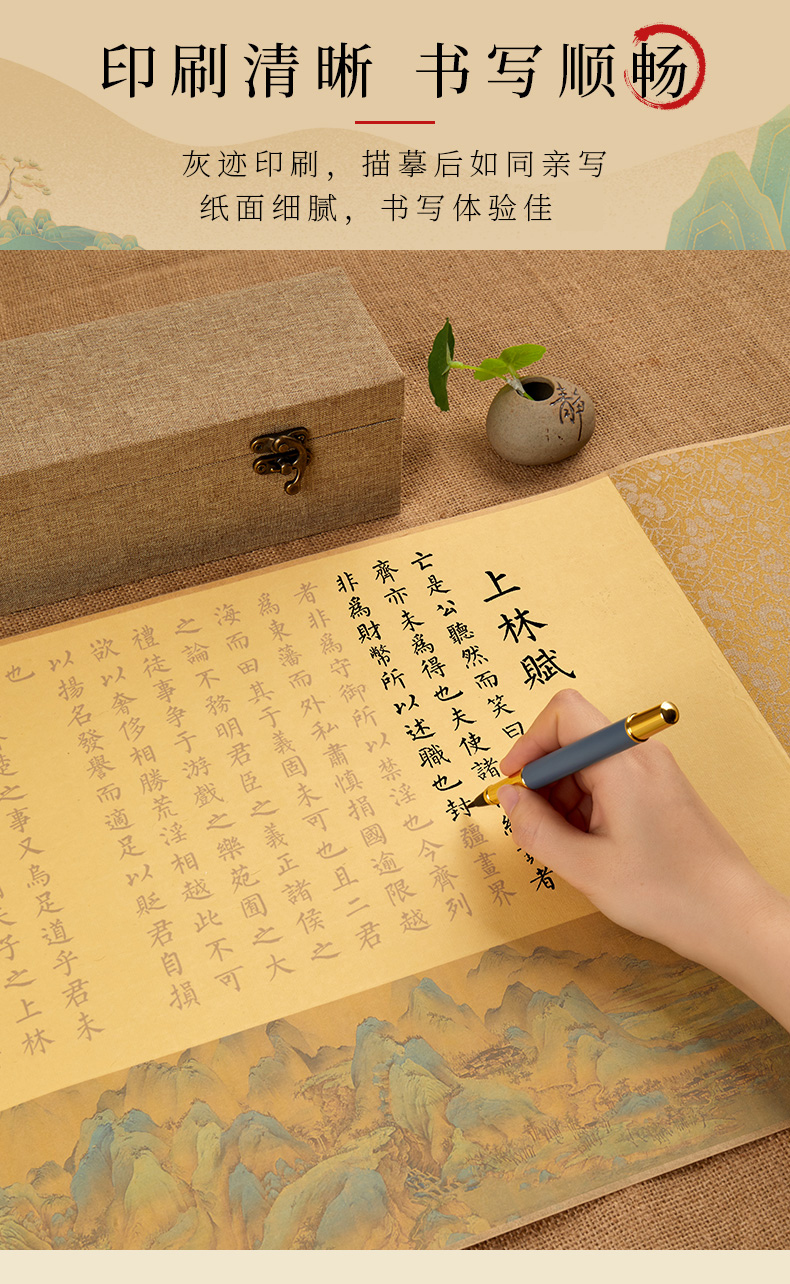 印刷清晰 书写顺畅
灰迹印刷，描摹后如同亲写
纸面细腻，书写体验佳
靜
上林賦
亡是公聽然而笑曰
齊亦未為得也夫使諸 者
非為財幣所以述職也封疆畫界
者非為守御所以禁淫也今齊列
為東藩而外私肅慎捐國逾限越
海而田其于義固未可也且二君
之論不務明君臣之義正諸侯之
禮徒事争于游戲之樂苑囿之大
欲以奢侈相勝荒淫相越此不可
以揚名發譽而適足以貶君自損
也 楚之事又烏足道乎君未
子之上林